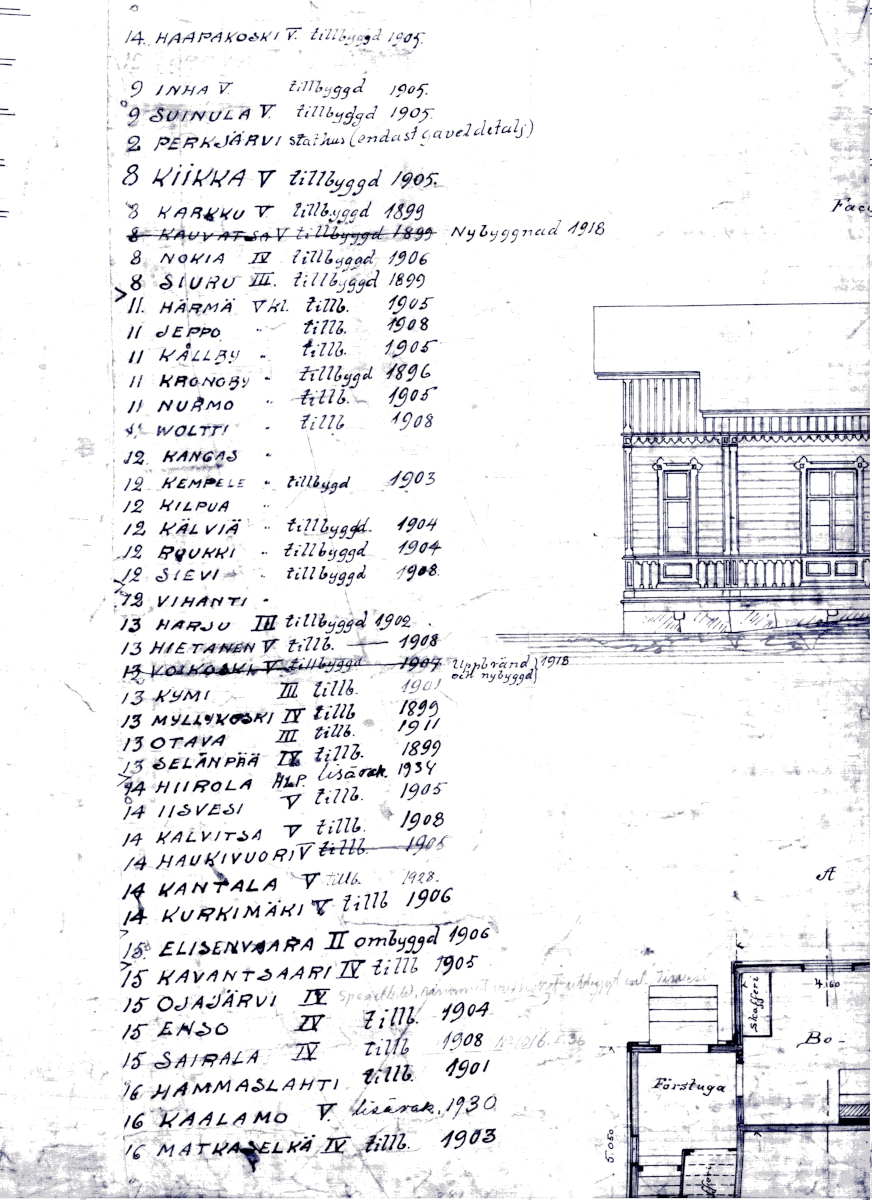 14 HAAPAKOSKI V. tillbyggd 1905.
9 INHA V. tillbyggd 1905.
9 SUINULA V. tillbyggd 1905.
2 PERKJÄRVI stathus (endast gaveldetalj)
8 KIIKKA V tillbyggd 1905.
8 KARKKU V. tillbyggd 1899
8 KAUVATSA V tillbyggd 1899 Nybyggnad 1918
8 NOKIA IV tillbyggd 1906
8 SIURU III. tillbyggd 1899
11. HÄRMÄ V kl. tillb. 1905
11 JEPPO " tillb. 1908
11 KÅLLBY " tillb. 1905
11 KRONOBY " tillbyggd 1896
11 NURMO " tillb. 1905
11 WOLTTI " tillb 1908
12 KANGAS "
12 KEMPELE " tillbyggd 1903
12 KILPUA "
12 KÄLVIÄ " tillbyggd. 1904
12 RUUKKI " tillbyggd 1904
12 SIEVI " tillbyggd 1908
12 VIHANTI "
13 HARJU III tillbyggd 1902
13 HIETANEN V tillb. — 1908
13 VOIKOSKI V tillbyggd 1907 Uppbränd och nybyggd} 1918
13 KYMI III tillb. 1901
13 MYLLYKOSKI IV tillb 1899
13 OTAVA III tillb. 1911
13 SELÄNPÄÄ IV tillb. 1899
14 HIIROLA HLP. lisärak. 1934
14 IISVESI V tillb. 1905
14 KALVITSA V tillb. 1908
14 HAUKIVUORI V tillb. 1905
14 KANTALA V tillb. 1928.
14 KURKIMÄKI V tillb 1906
15 ELISENVAARA II ombyggd 1906
15 KAVANTSAARI IV tillb 1905
15 OJAJÄRVI IV
15 ENSO IV tillb. 1904
15 SAIRALA IV tillb 1908
16 HAMMASLAHTI tillb. 1901
16 KAALAMO V. lisärak. 1930
16 MATKASELKÄ IV tillb. 1903
A
4.160
Skafferi
Bo-
Förstuga
5.050